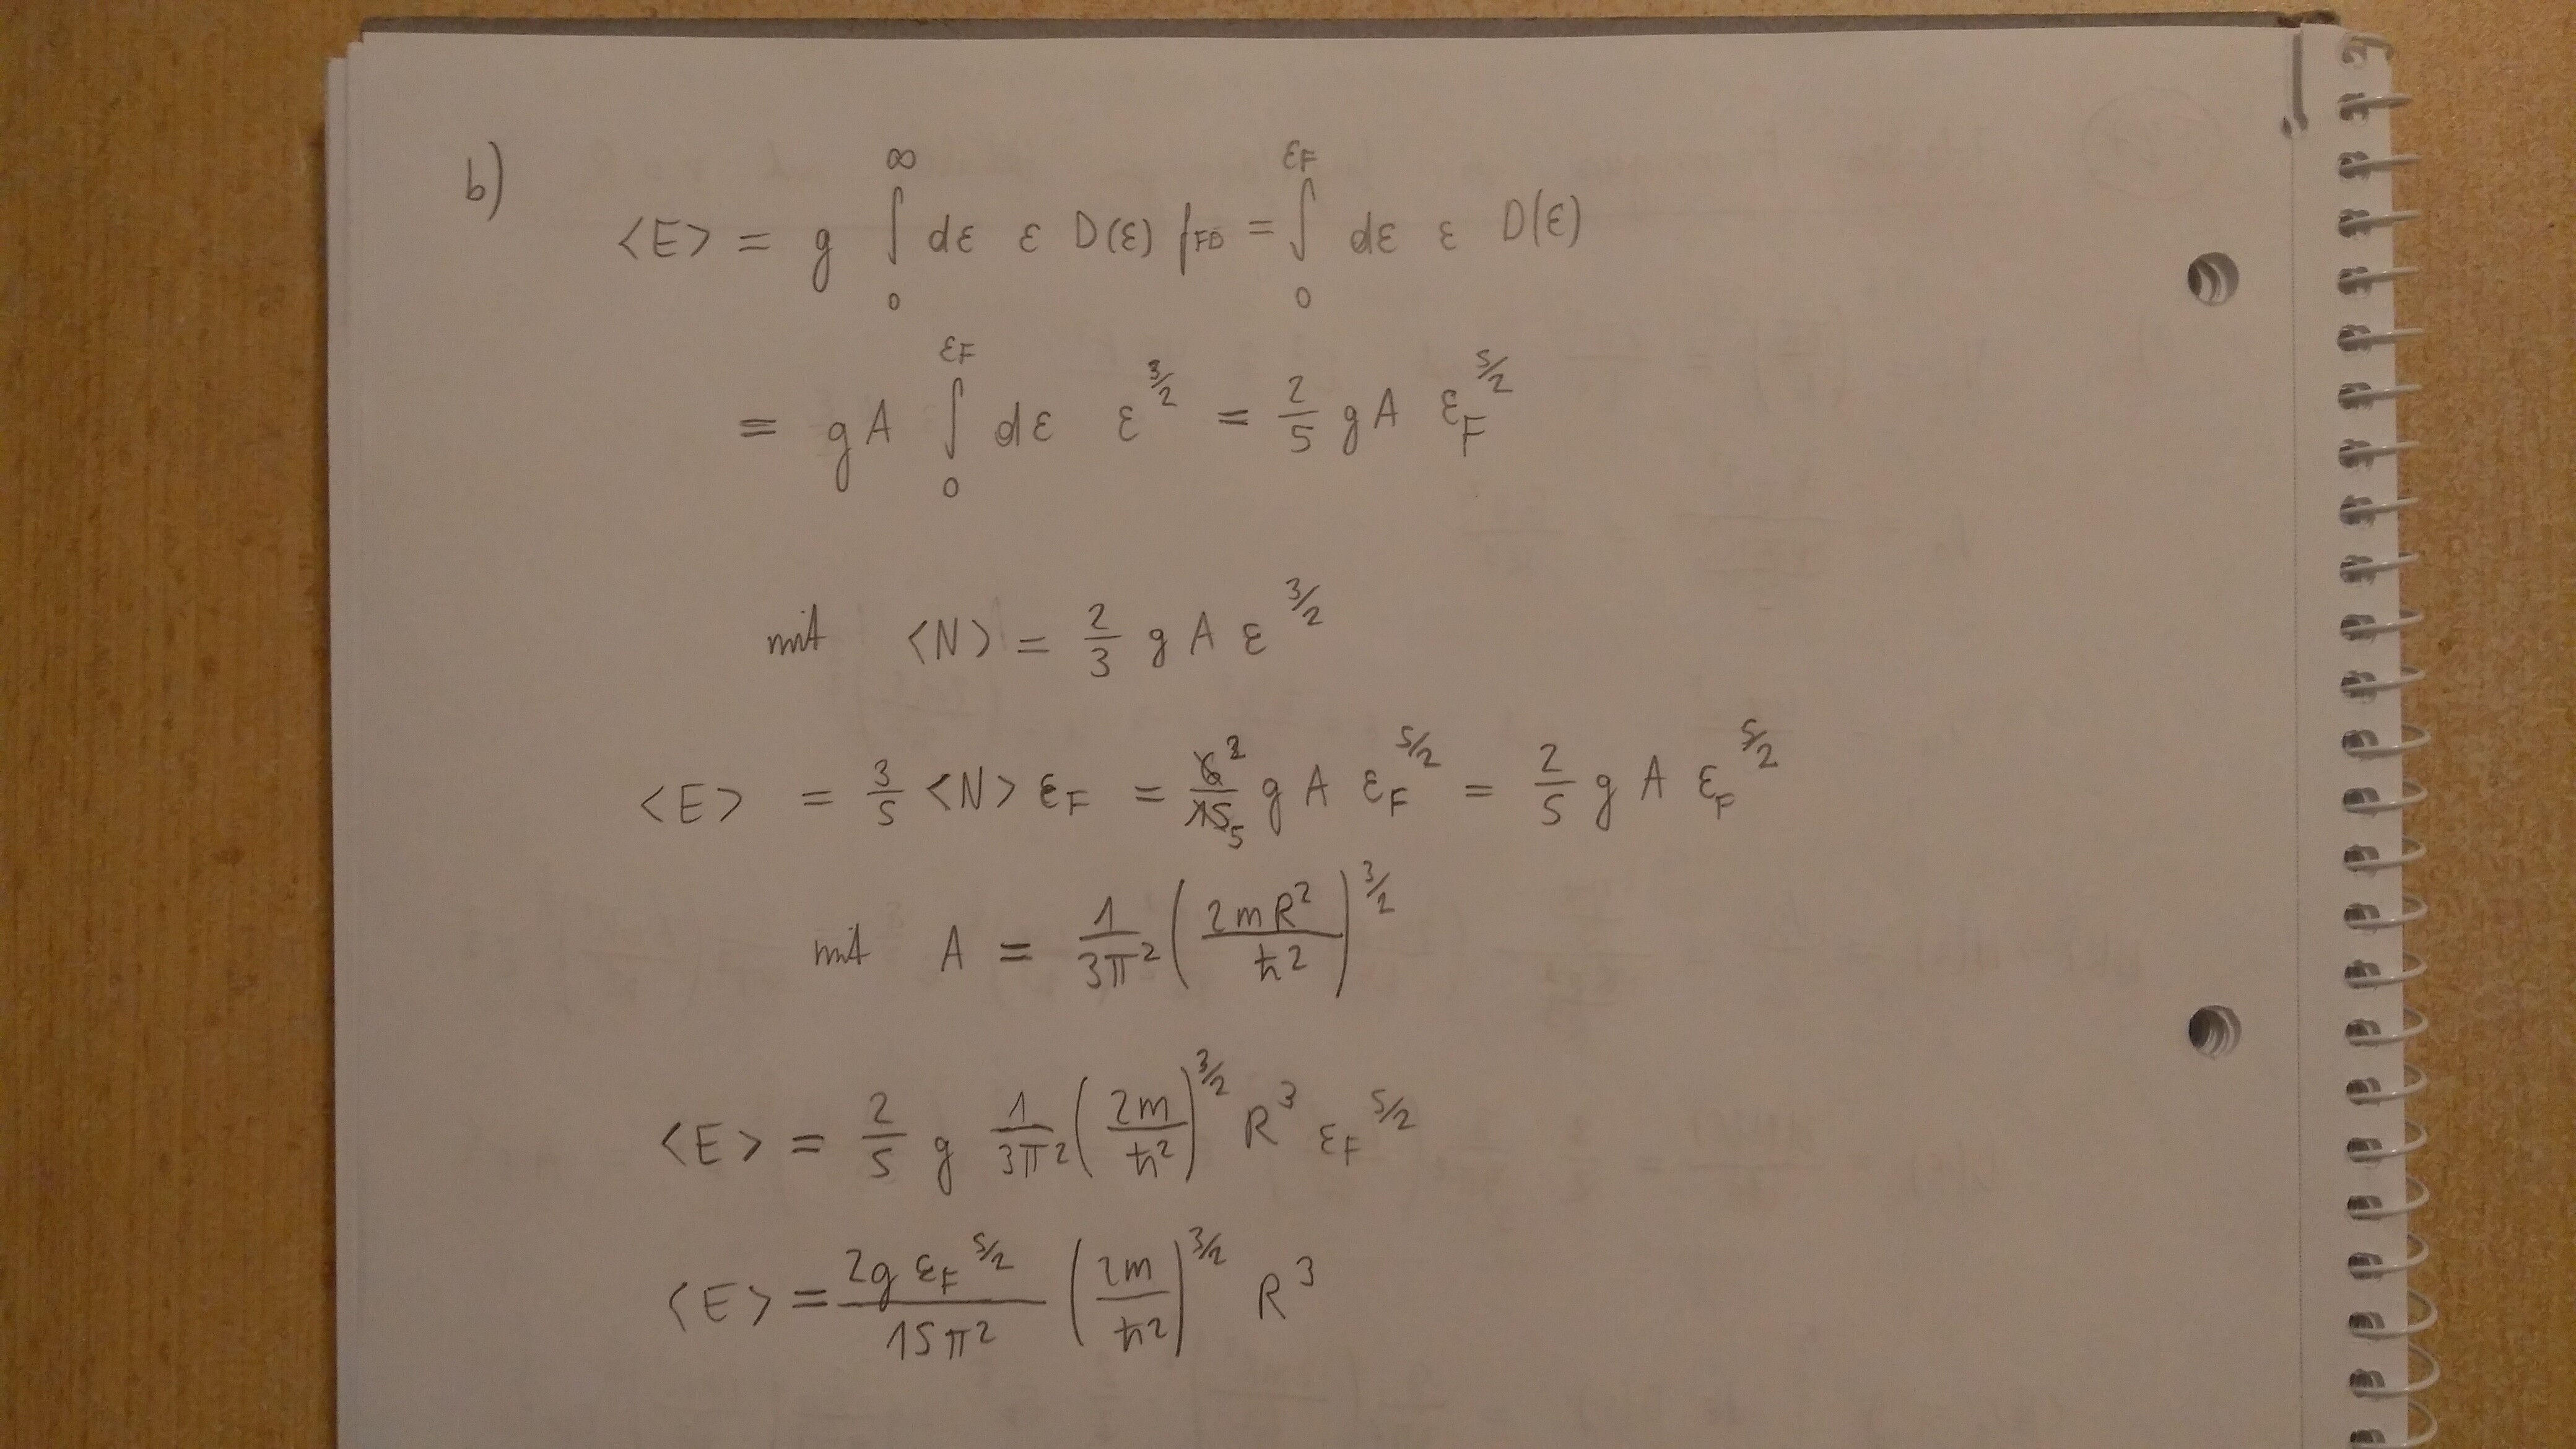 b)
<E> = g ∫₀^∞ dε ε D(ε) f_FD = ∫₀^εF dε ε D(ε)
= g A ∫₀^εF dε ε^3/2 = 2/5 g A ε_F^5/2
mit <N> = 2/3 g A ε^3/2
<E> = 3/5 <N> ε_F = 6̸²/1̸5̸₅ g A ε_F^5/2 = 2/5 g A ε_F^5/2
mit A = 1/3π² (2mR²/ħ²)^3/2
<E> = 2/5 g 1/3π² (2m/ħ²)^3/2 R³ ε_F^5/2
<E> = 2g ε_F^5/2 / 15π² (2m/ħ²)^3/2 R³